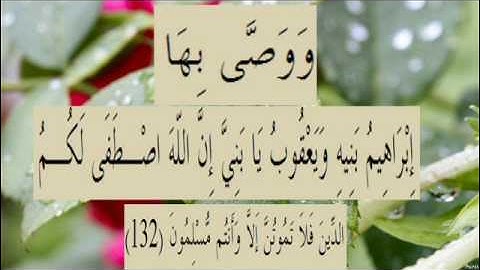 وَوَصَّى بِهَا
إِبْرَاهِيمُ بَنِيهِ وَيَعْقُوبُ يَا بَنِيَّ إِنَّ اللّهَ اصْـــطَفَى لَكُـــمُ
الدِّينَ فَلاَ تَمُوتُنَّ إَلاَّ وَأَنتُم مُّسْلِمُونَ (132)